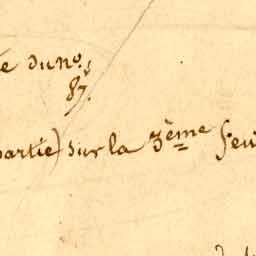 e du no.
87.
partie) sur la 3ème feui